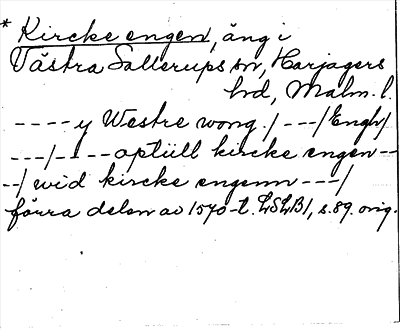 * Kircke engen, äng i
Västra Sallerups sn, Harjagers
hd, Malm. l.
---- y Westre wong./ ---/Engh/
---/---- optüll kircke engen --
--/ wid kircke engenn ---/
förra delen av 1570-t. LSLB1, s. 89. orig.